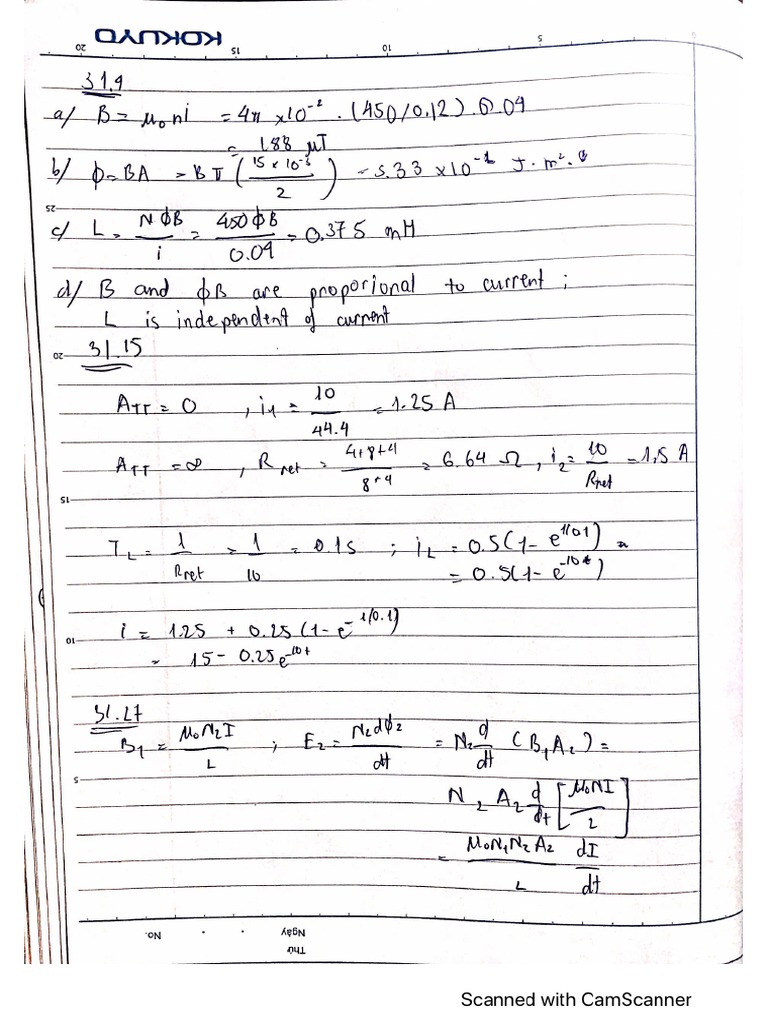 KOKUYO
20 15 10 5
31.9
a/ B = μ₀ni = 4π × 10⁻² . (450/0.12) . 0.04
= 188 μT
b/ ϕ = BA = Bπ (15 × 10⁻³ / 2) = 3.33 × 10⁻² J . m² .
25
c/ L = NϕB / i = 450ϕB / 0.09 = 0.375 mH
d/ B and ϕB are proporional to current ;
L is independent of current
20
31.15
A_TT = 0 , i₁ = 10 / 44.4 = 1.25 A
A_TT = ∞ , R_ret = 4+8+4 / 8+4 = 6.64 Ω , i₂ = 10 / R_ret = 1.5 A
15
T_L = 1 / R_ret = 1 / 10 = 0.1s ; i_L = 0.5(1 - e^1/0.1) =
= 0.5(1 - e^-10t)
10
i = 1.25 + 0.25 (1 - e^-1/0.1)
= 1.5 - 0.25e^-10t
31.27
B₁ = μ₀N₂I / L ; E₂ = N₂dϕ₂ / dt = N₂ d/dt (B₁A₂) =
5
N₂ A₂ d/dt [μ₀NI / 2]
= μ₀N₁N₂A₂ / L dI/dt
No.
Ngày . .
Thứ
Scanned with CamScanner